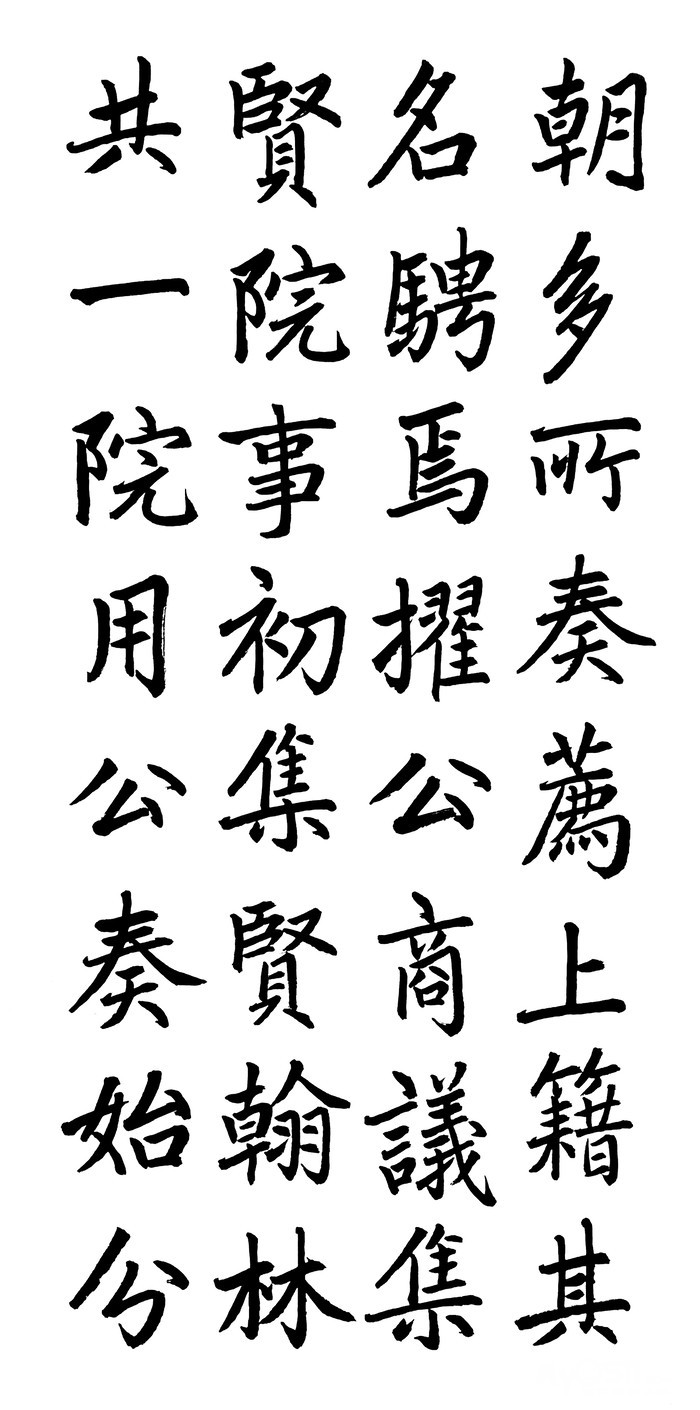 朝多所奏薦上籍其
名騁焉擢公商議集
賢院事初集賢翰林
共一院用公奏始分